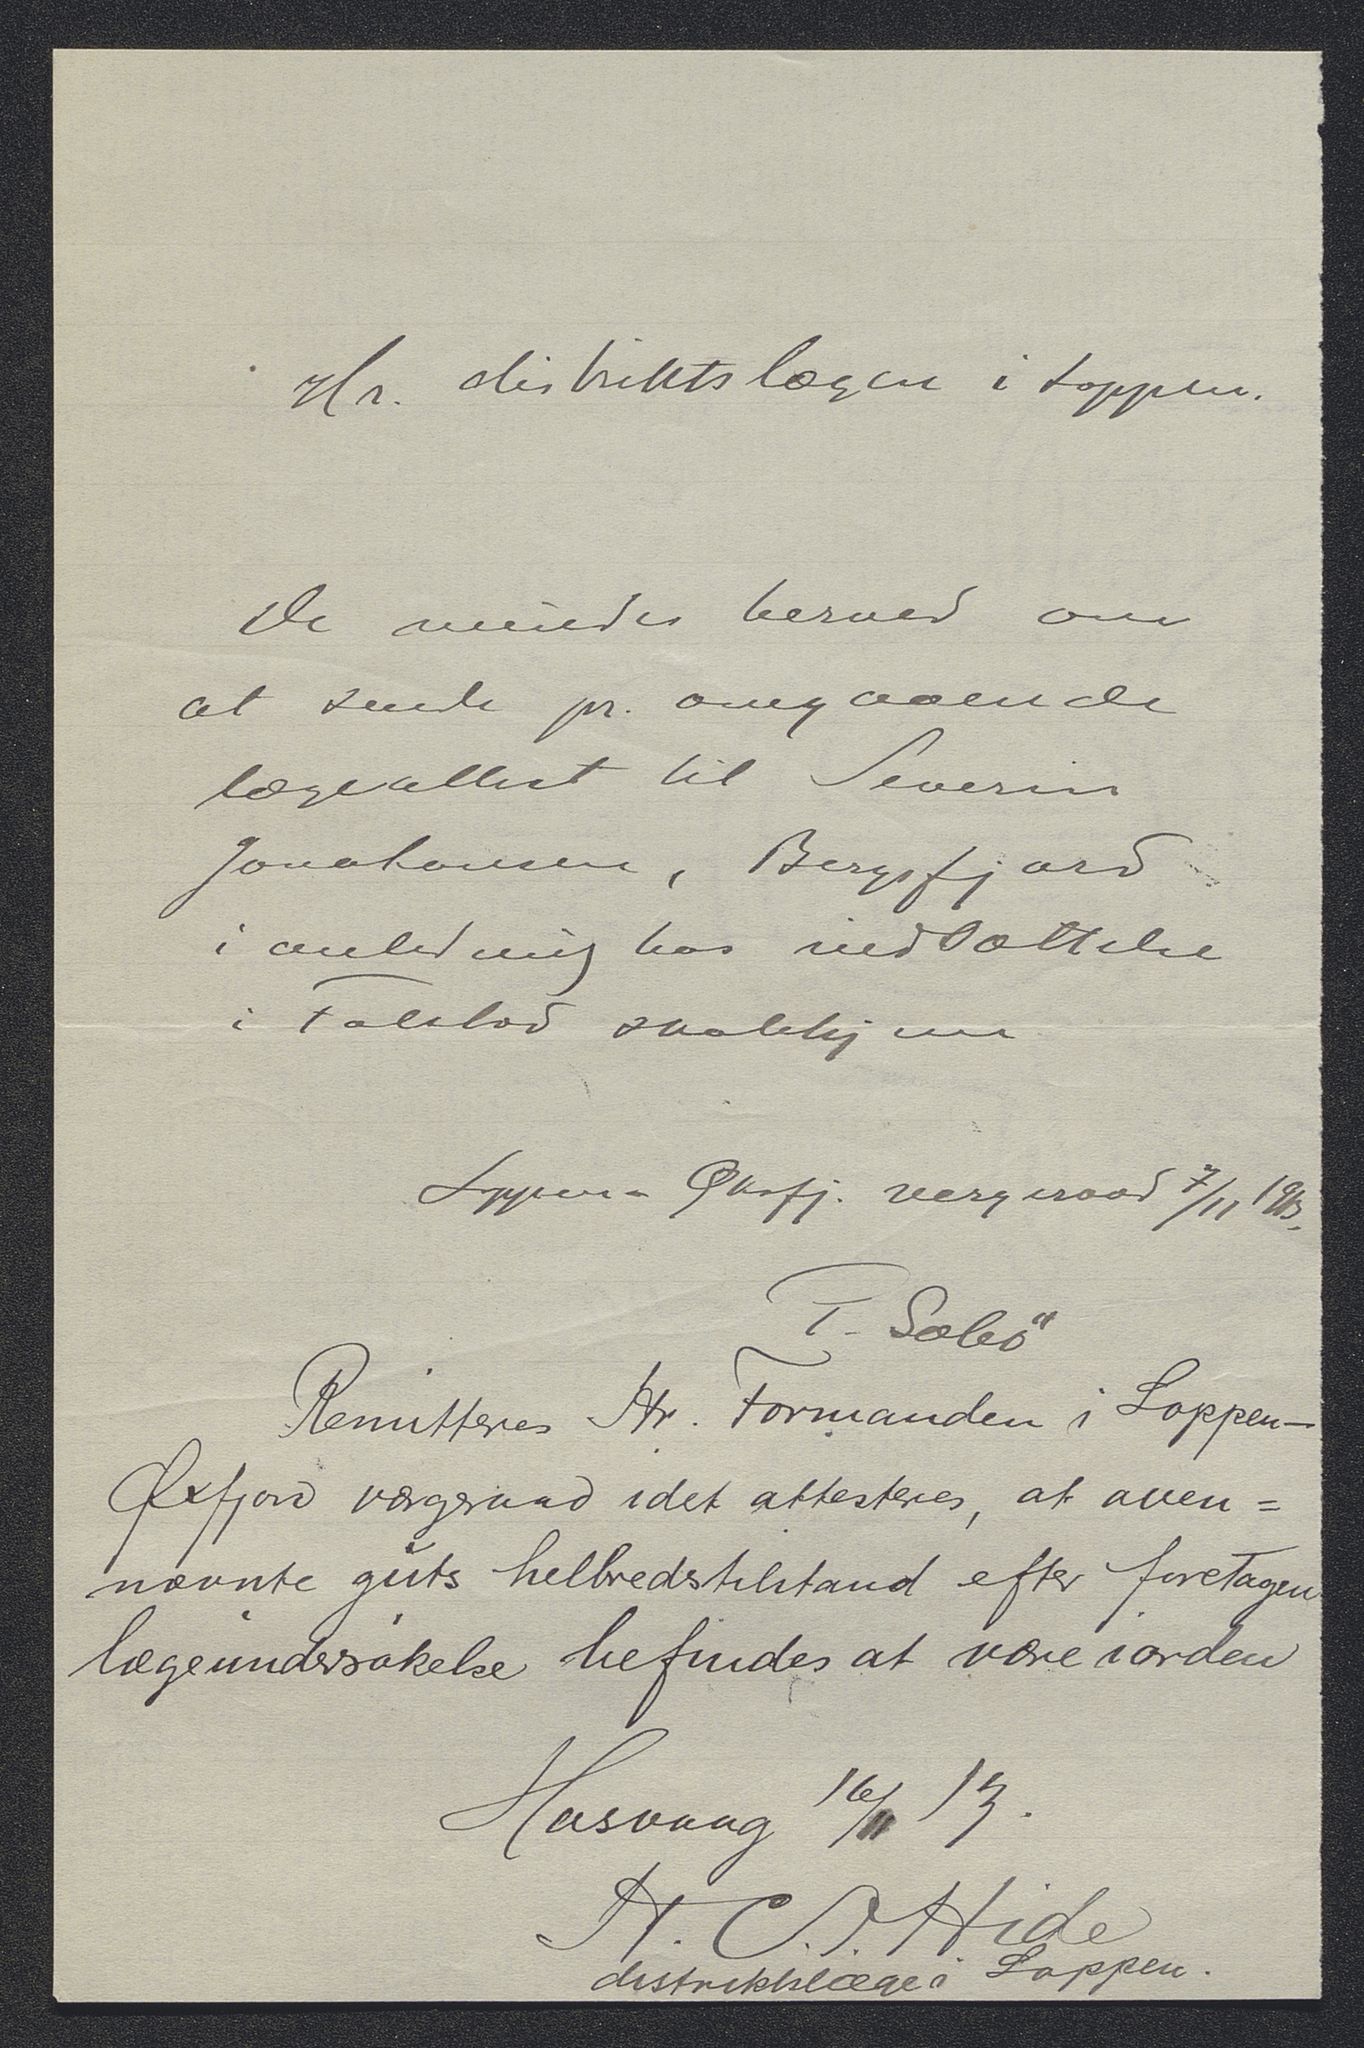 Hr. distriktslægen i Loppen.
De mindes herved om
at sende pr. omgaaende
lægeattest til Severin
Jonahansen, Bergsfjord
i anledning hos indsættelse
i Falstad skolehjem
Loppen - Øksfj. vergeraad 7/11 1913.
T. Sæbö
Remitteres Hr. Formanden i Loppen-
Øxfjord værgeraad idet attesteres, at oven=
nævnte guts helbredstilstand efter foretagen
lægeundersökelse befindes at være iorden
Hasvaag 16/11 13.
H. C. Hide
distriktslæge i Loppen.